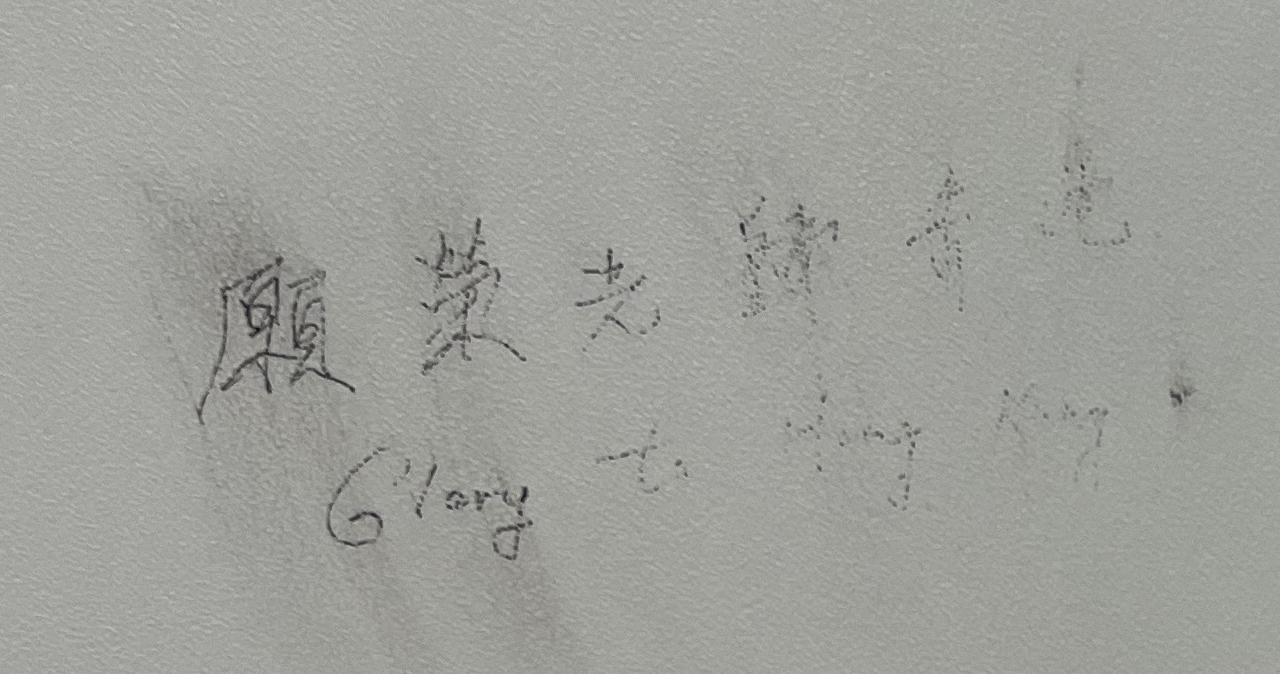 願榮光歸香港
Glory to Hong Kong